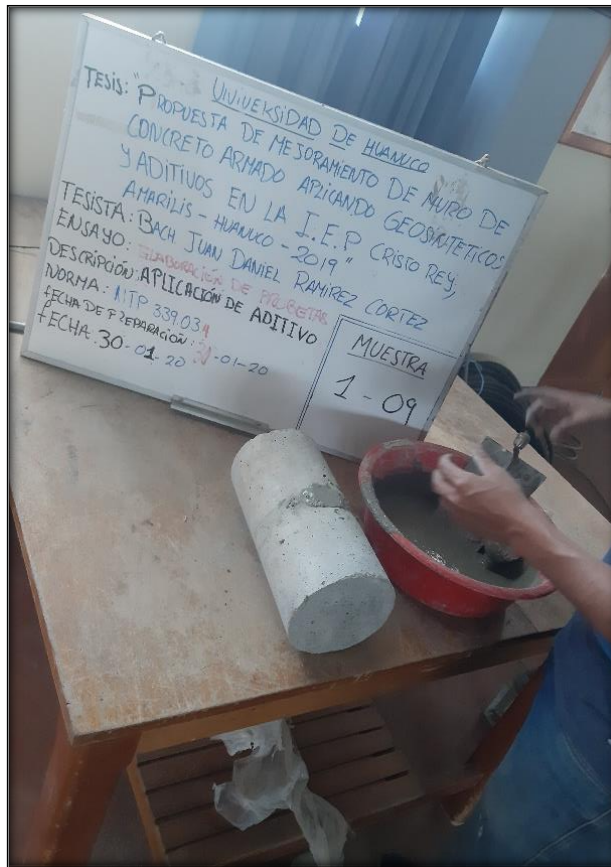 UNIVERSIDAD DE HUANUCO
TESIS: "PROPUESTA DE MEJORAMIENTO DE MURO DE
CONCRETO ARMADO APLICANDO GEOSINTETICOS
Y ADITIVOS EN LA I.E.P CRISTO REY,
AMARILIS - HUANUCO - 2019"
TESISTA: BACH JUAN DANIEL RAMIREZ CORTEZ
ENSAYO: ELABORACIÓN DE PROBETAS
DESCRIPCIÓN: APLICACIÓN DE ADITIVO
NORMA: NTP 339.034
FECHA DE PREPARACIÓN: -01-20
FECHA: 30-01-20
MUESTRA
1-09